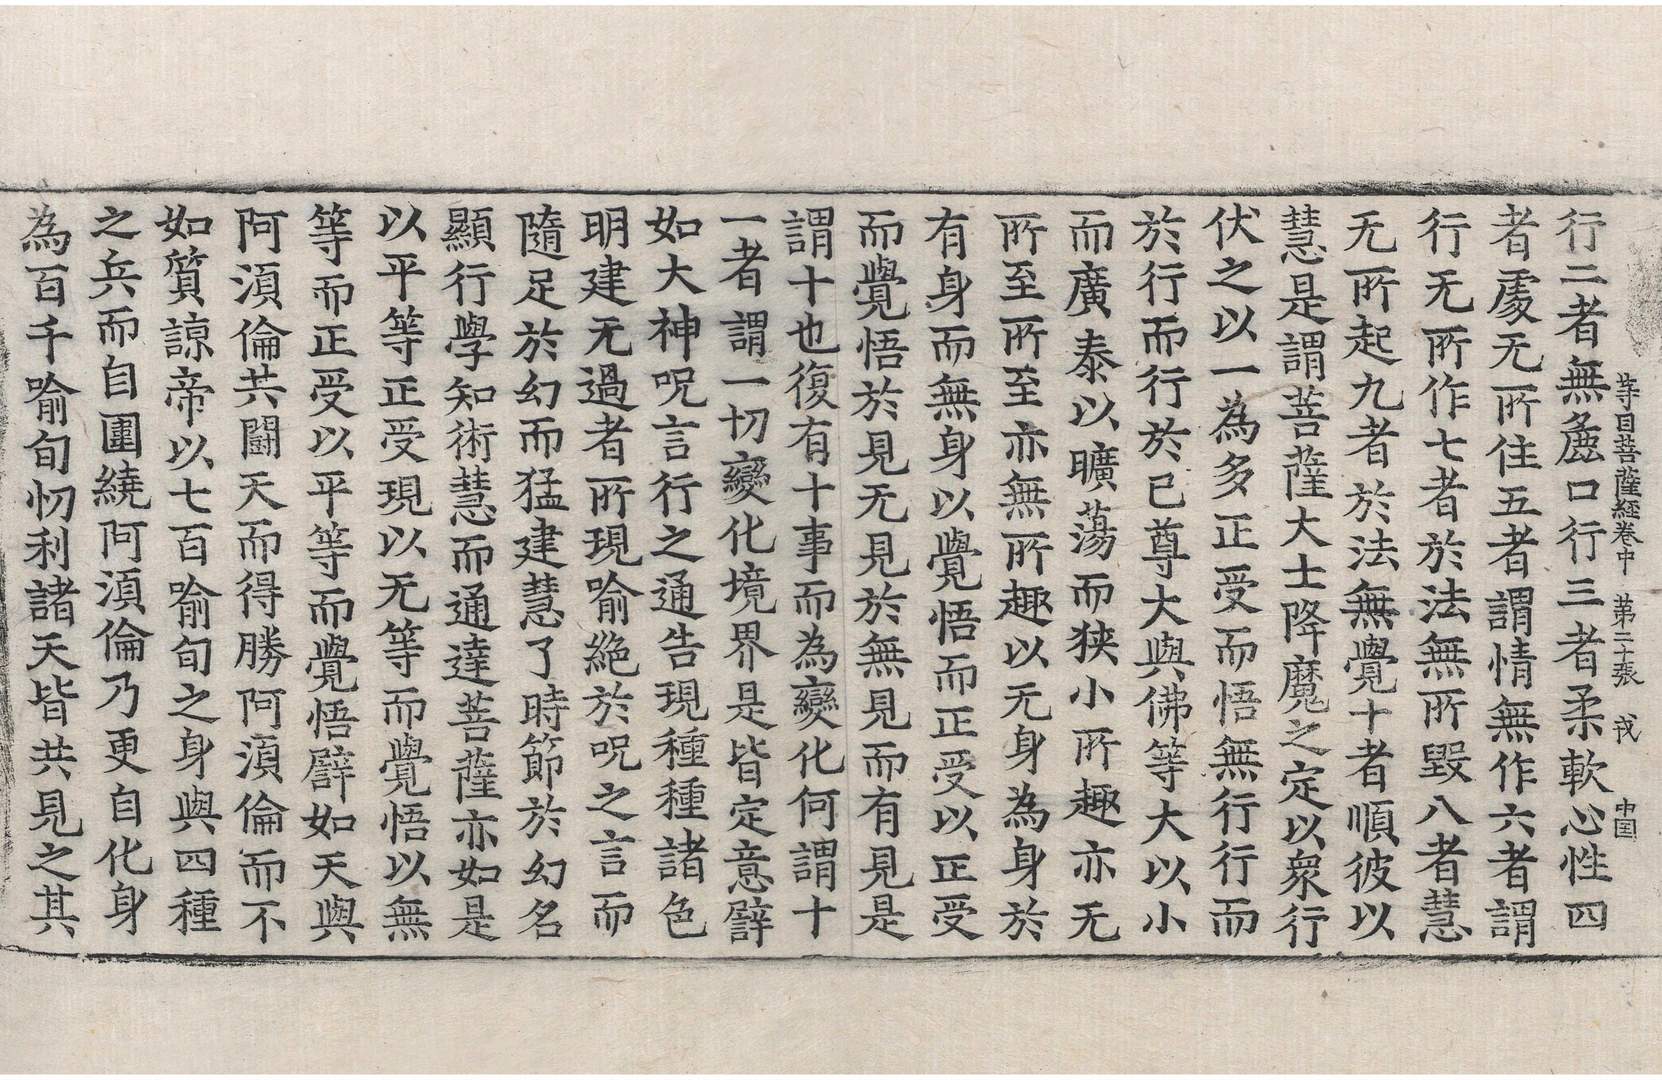 等目菩薩經卷中 第二十張 戎 中囯
行二者無麁口行三者柔軟心性四
者䖏无所住五者謂情無作六者謂
行无所作七者於法無所毀八者慧
无所起九者於法無覺十者順彼以
慧是謂菩薩大士降魔之定以衆行
伏之以一為多正受而悟無行行而
於行而行於已尊大與佛等大以小
而廣泰以曠蕩而狹小所趣亦无
所至所至亦無所趣以无身為身於
有身而無身以覺悟而正受以正受
而覺悟於見无見於無見而有見是
謂十也復有十事而為變化何謂十
一者謂一切變化境界是皆定意譬
如大神呪言行之通告現種種諸色
明建无過者所現喻絶於呪之言而
隨足於幻而猛建慧了時節於幻名
顯行學知術慧而通達菩薩亦如是
以平等正受現以无等而覺悟以無
等而正受以平等而覺悟譬如天與
阿湏倫共鬪天而得勝阿湏倫而不
如質諒帝以七百喻旬之身與四種
之兵而自圍繞阿湏倫乃更自化身
為百千喻旬忉利諸天皆共見之其